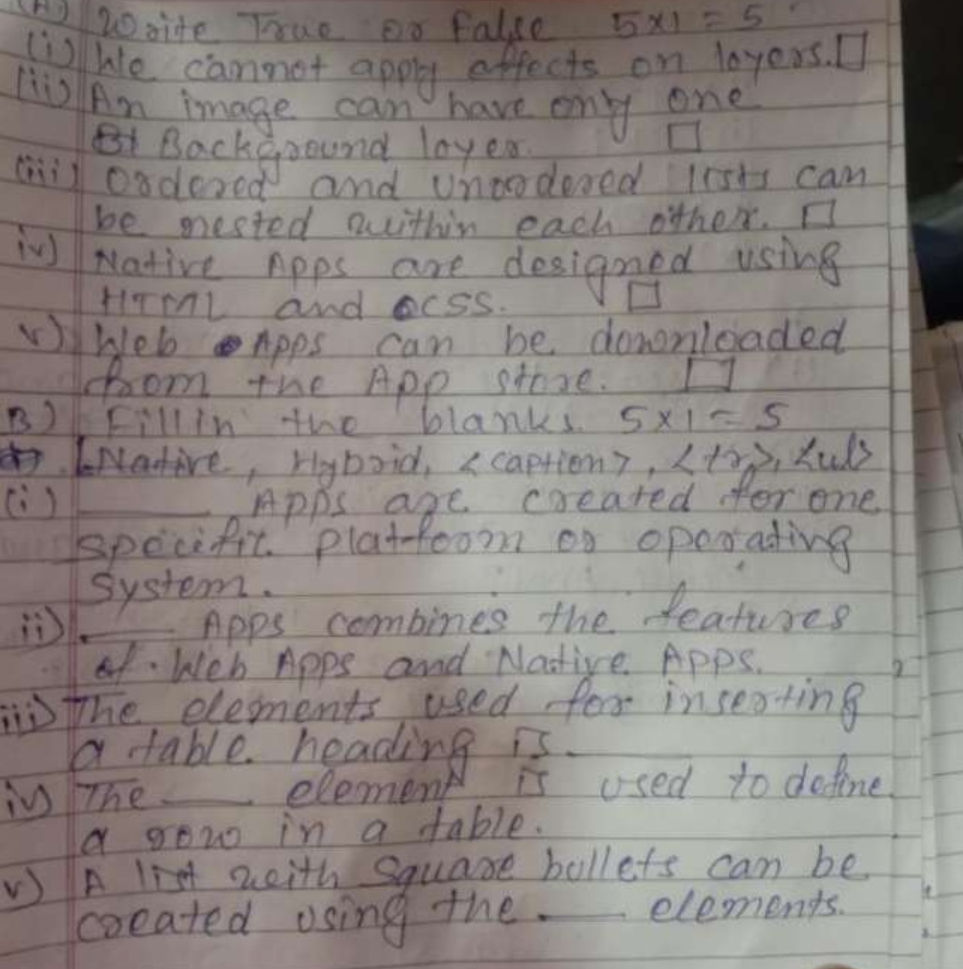 (A) Write True or False 5x1 = 5
(i) We cannot apply effects on layers. □
(ii) An image can have only one
Background layer. □
(iii) Ordered and Unordered lists can
be nested within each other. □
iv) Native Apps are designed using
HTML and CSS. □
v) Web Apps can be downloaded
from the App store. □
B) Fill in the blanks. 5x1 = 5
Native, Hybrid, <caption>, <tr>, <ul>
(i) ____ Apps are created for one
specific platform or operating
System.
ii) ____ Apps combines the features
of Web Apps and Native Apps.
iii) The elements used for inserting
a table heading is ____
iv) The ____ element is used to define
a row in a table.
v) A list with Square bullets can be
created using the ____ elements.